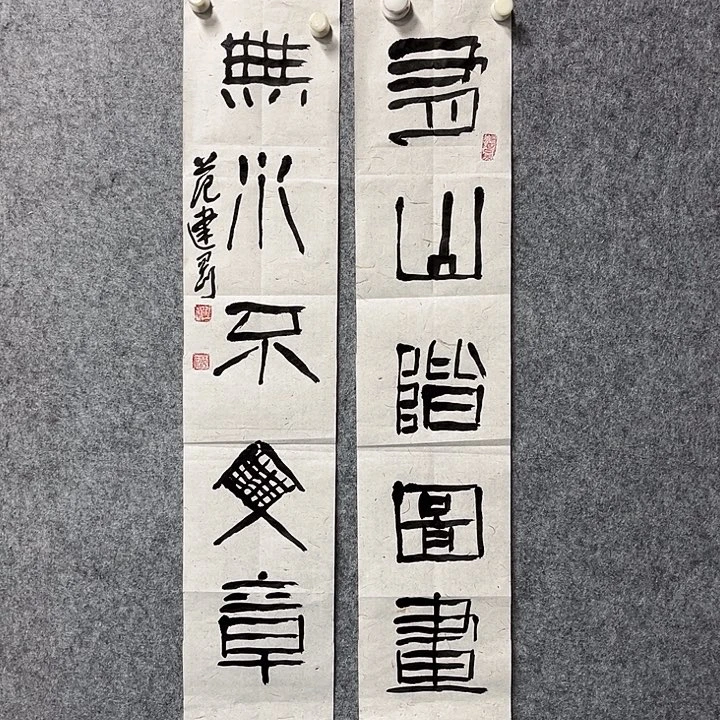 有山階圖畫
無水不文章
范建